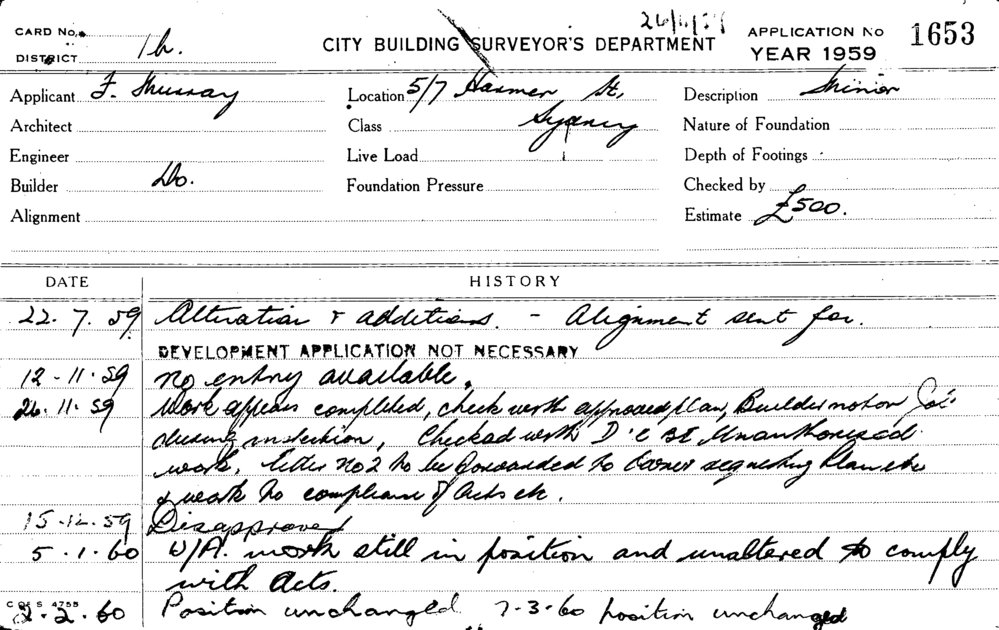 24/11/59
CARD No. CITY BUILDING SURVEYOR'S DEPARTMENT APPLICATION No 1653
DISTRICT 1h. YEAR 1959
Applicant F. Murray Location 5/7 Harmer St, Description Minor
Architect Class Sydney Nature of Foundation
Engineer Live Load Depth of Footings
Builder Do. Foundation Pressure Checked by
Alignment Estimate £500.
DATE HISTORY
22.7.59 Alteration & additions. - Alignment sent for.
DEVELOPMENT APPLICATION NOT NECESSARY
12-11-59 no entry available.
26.11.59 Work appears completed, check with approved plan, Builder not on Job
during inspection, Checked with D.C.BI Unauthorised
work, letter No 2 to be forwarded to Owner requesting plans etc
& work to compliance of Acts etc.
15.12.59 Disapproved
5.1.60 W/A. work still in position and unaltered to comply
with Acts.
C OF S 4755
2.2.60 Position unchanged 7-3-60 position unchanged